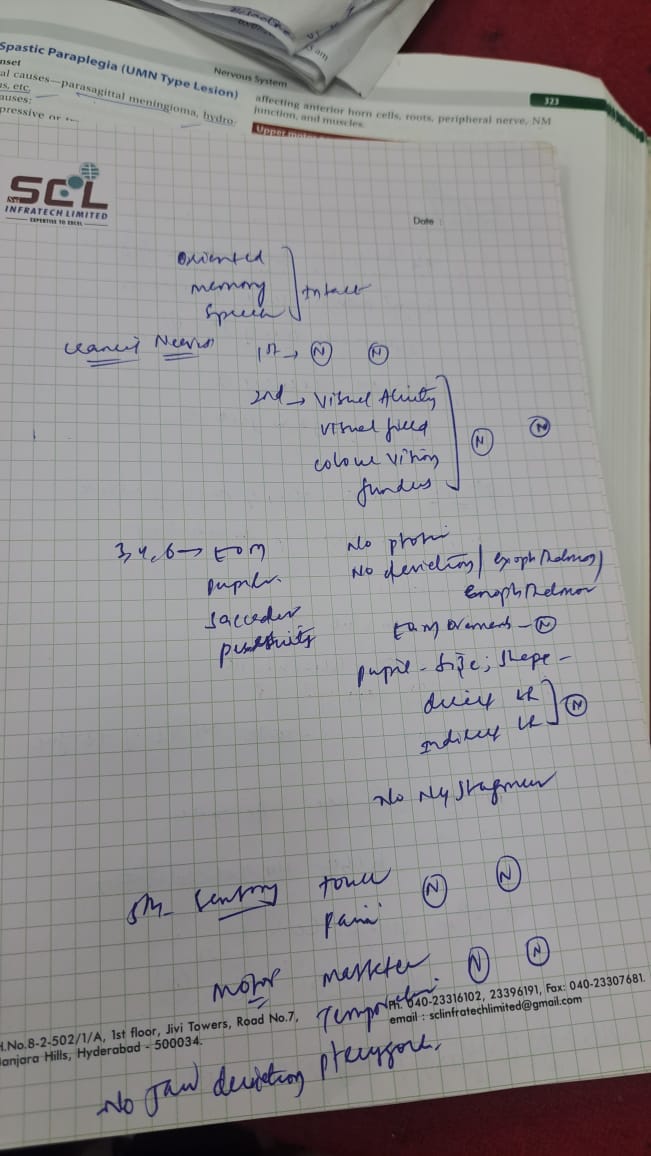 Spastic Paraplegia (UMN Type Lesion)
Nervous System
323
nset
al causes—parasagittal meningioma, hydro-
s, etc.
auses:
pressive or
affecting anterior horn cells, roots, peripheral nerve, NM
junction, and muscles.
Upper motor
SCL
INFRATECH LIMITED
EXPERTISE TO EXCEL
Date :
Oriented
memory
Speech
Intact
Cranial Nerves
1st → N N
2nd → Visual Acuity
Visual field
colour vision
fundus
N N
3,4,6 → EOM
pupils
saccades
pursuits
No ptosis
No deviation / Exophthalmos /
Enophthalmos
movements - N
pupil - Size; Shape -
direct LR
Indirect LR
N
No Nystagmus
5th - Sensory touch N N
pain
motor masseter N N
Temporalis
pterygoid.
No Jaw deviation
H.No.8-2-502/1/A, 1st floor, Jivi Towers, Road No.7,
anjara Hills, Hyderabad - 500034.
Ph: 040-23316102, 23396191, Fax: 040-23307681.
email : sclinfratechlimited@gmail.com